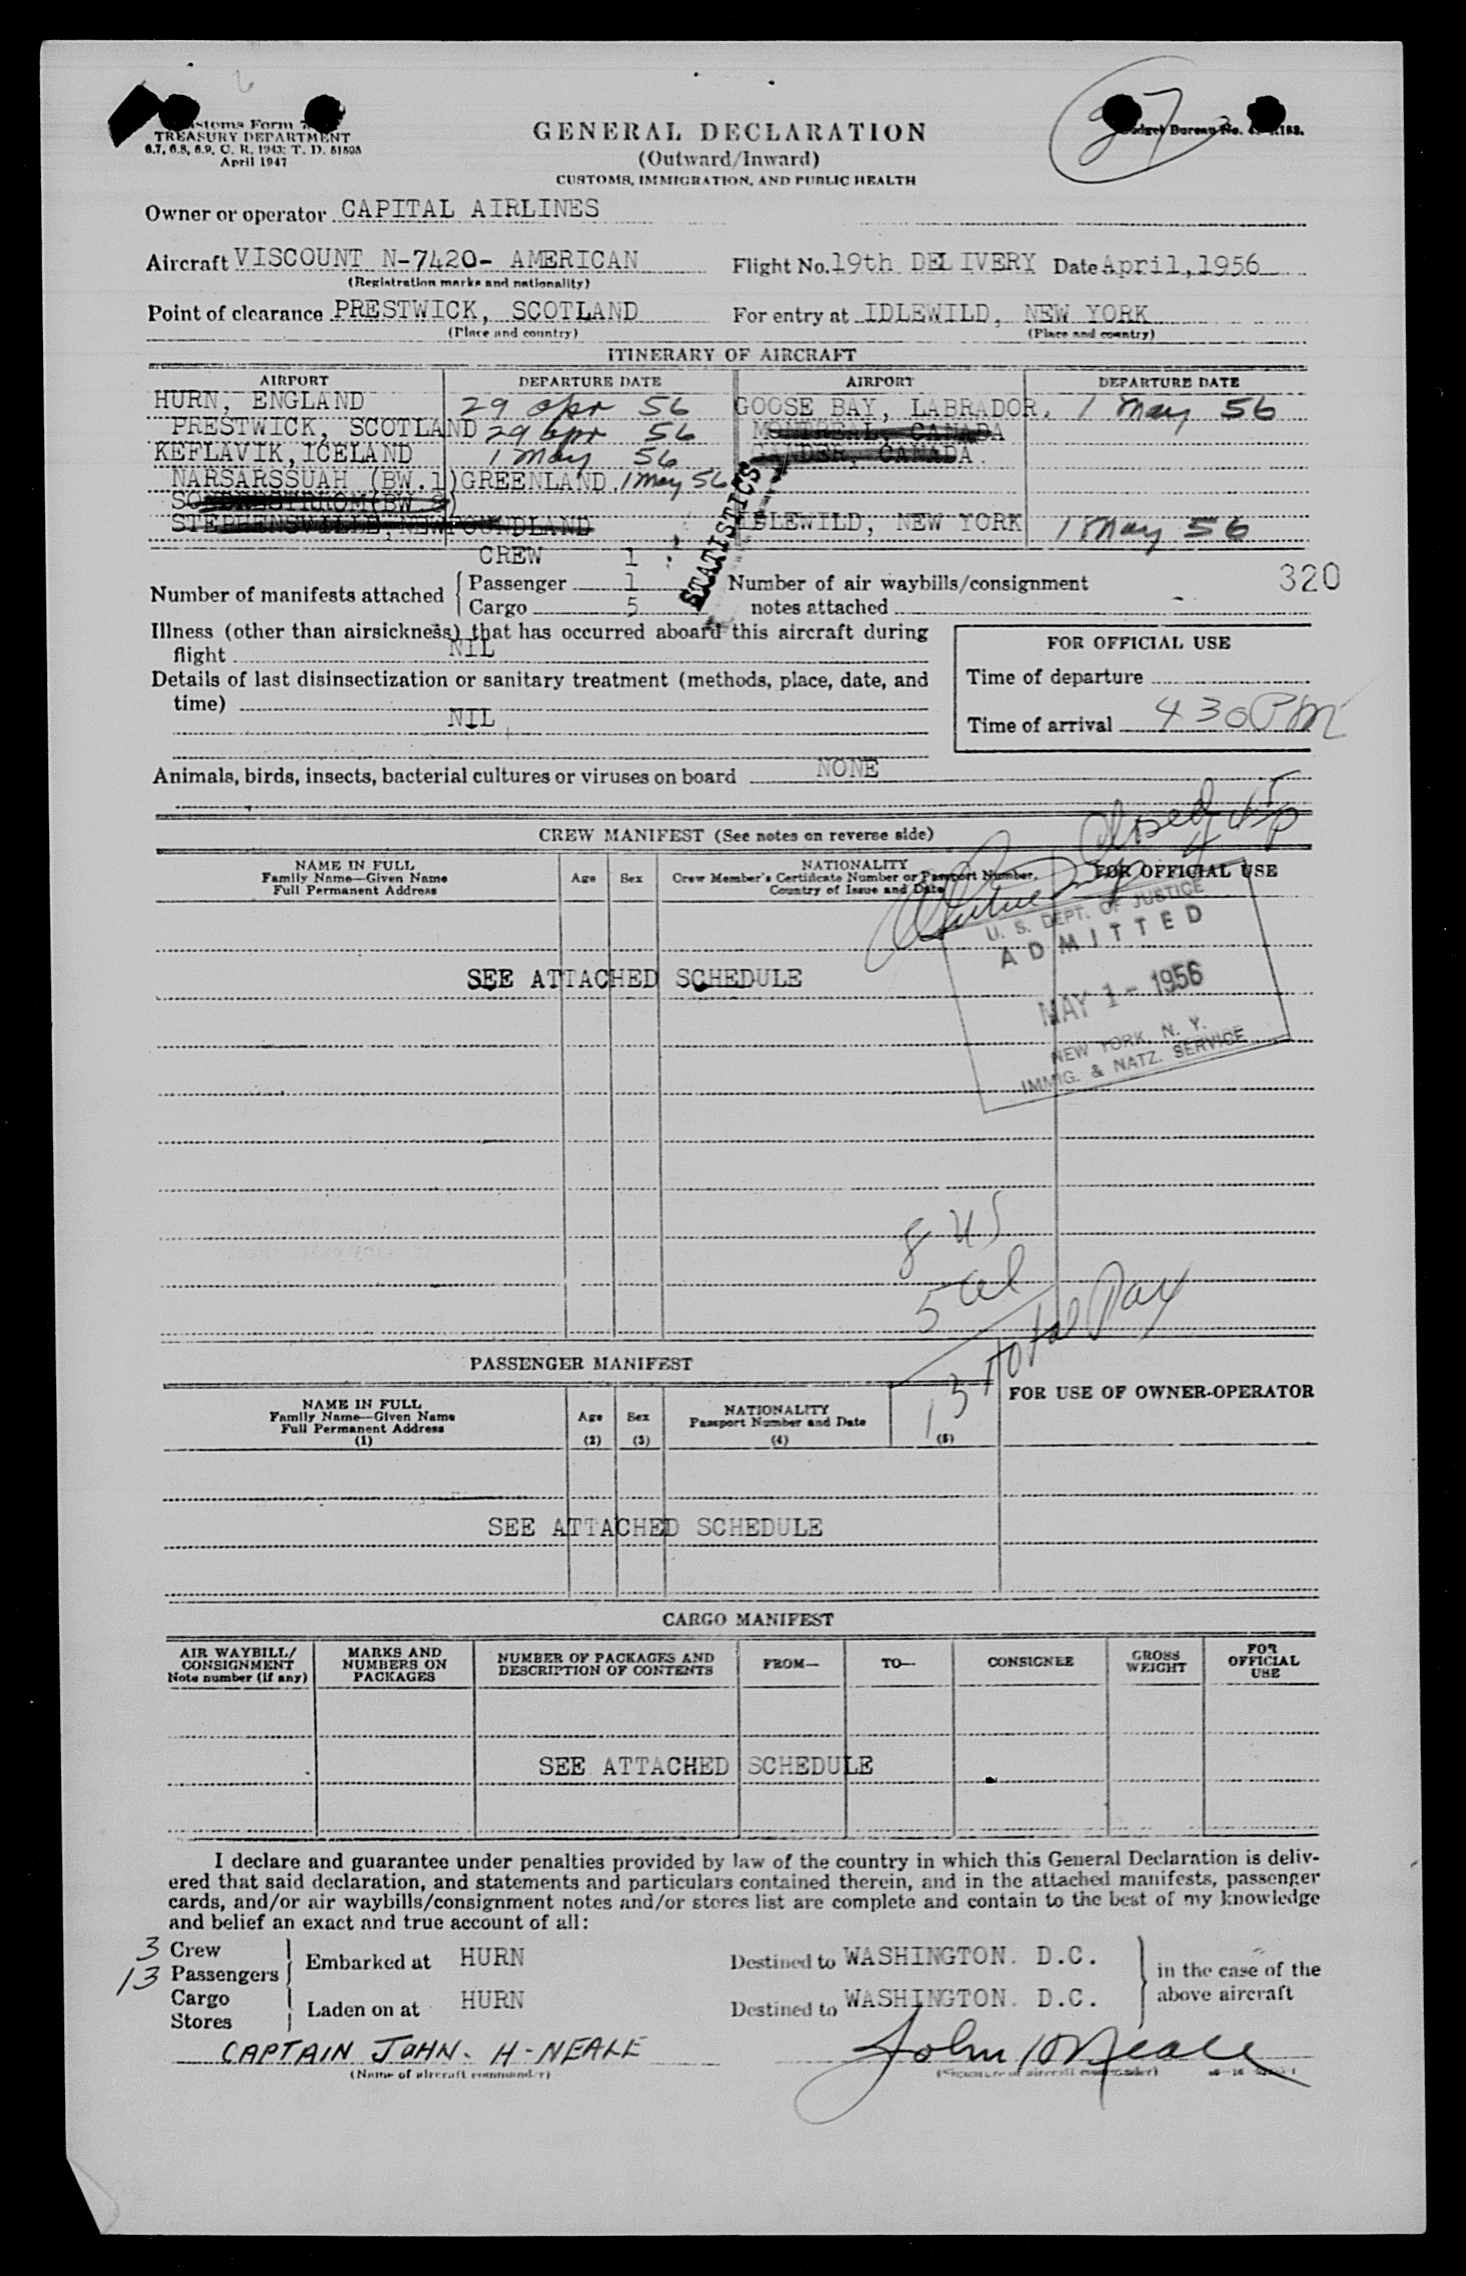 Customs Form
TREASURY DEPARTMENT
6.7, 6.8, 6.9, C. R. 1943; T. D. 51808
April 1947
GENERAL DECLARATION
(Outward/Inward)
CUSTOMS, IMMIGRATION, AND PUBLIC HEALTH
87
Budget Bureau No.
Owner or operator CAPITAL AIRLINES
Aircraft VISCOUNT N-7420- AMERICAN Flight No. 19th DELIVERY Date April, 1956
(Registration marks and nationality)
Point of clearance PRESTWICK, SCOTLAND For entry at IDLEWILD, NEW YORK
(Place and country) (Place and country)
ITINERARY OF AIRCRAFT
AIRPORT DEPARTURE DATE AIRPORT DEPARTURE DATE
HURN, ENGLAND 29 apr 56 GOOSE BAY, LABRADOR, 1 May 56
PRESTWICK, SCOTLAND 29 apr 56 MONTREAL, CANADA
KEFLAVIK, ICELAND 1 May 56 GANDER, CANADA.
NARSARSSUAH (BW.1) GREENLAND. 1 May 56
STEPHENSVILLE, NEWFOUNDLAND IDLEWILD, NEW YORK 1 May 56
STATISTICS
CREW 1
Number of manifests attached Passenger 1 Number of air waybills/consignment 320
Cargo 5 notes attached -
Illness (other than airsickness) that has occurred aboard this aircraft during
flight NIL
FOR OFFICIAL USE
Details of last disinsectization or sanitary treatment (methods, place, date, and
time) NIL
Time of departure
Time of arrival 430 PM
Animals, birds, insects, bacterial cultures or viruses on board NONE
Closed
CREW MANIFEST (See notes on reverse side)
NAME IN FULL
Family Name—Given Name
Full Permanent Address
Age Sex
NATIONALITY
Crew Member's Certificate Number or Passport Number,
Country of Issue and Date
FOR OFFICIAL USE
U. S. DEPT. OF JUSTICE
ADMITTED
MAY 1 - 1956
NEW YORK, N. Y.
IMMIG. & NATZ. SERVICE
SEE ATTACHED SCHEDULE
8 US
5 al
13 Total Pax
PASSENGER MANIFEST
NAME IN FULL
Family Name—Given Name
Full Permanent Address
(1)
Age
(2)
Sex
(3)
NATIONALITY
Passport Number and Date
(4)
(5)
FOR USE OF OWNER-OPERATOR
SEE ATTACHED SCHEDULE
CARGO MANIFEST
AIR WAYBILL/
CONSIGNMENT
Note number (if any)
MARKS AND
NUMBERS ON
PACKAGES
NUMBER OF PACKAGES AND
DESCRIPTION OF CONTENTS
FROM— TO— CONSIGNEE
GROSS
WEIGHT
FOR
OFFICIAL
USE
SEE ATTACHED SCHEDULE
I declare and guarantee under penalties provided by law of the country in which this General Declaration is deliv-
ered that said declaration, and statements and particulars contained therein, and in the attached manifests, passenger
cards, and/or air waybills/consignment notes and/or stores list are complete and contain to the best of my knowledge
and belief an exact and true account of all:
3 Crew
13 Passengers Embarked at HURN Destined to WASHINGTON. D.C. in the case of the
Cargo above aircraft
Stores Laden on at HURN Destined to WASHINGTON. D.C.
CAPTAIN JOHN. H-NEALE John H Neale
(Name of aircraft commander) (Signature of aircraft commander)